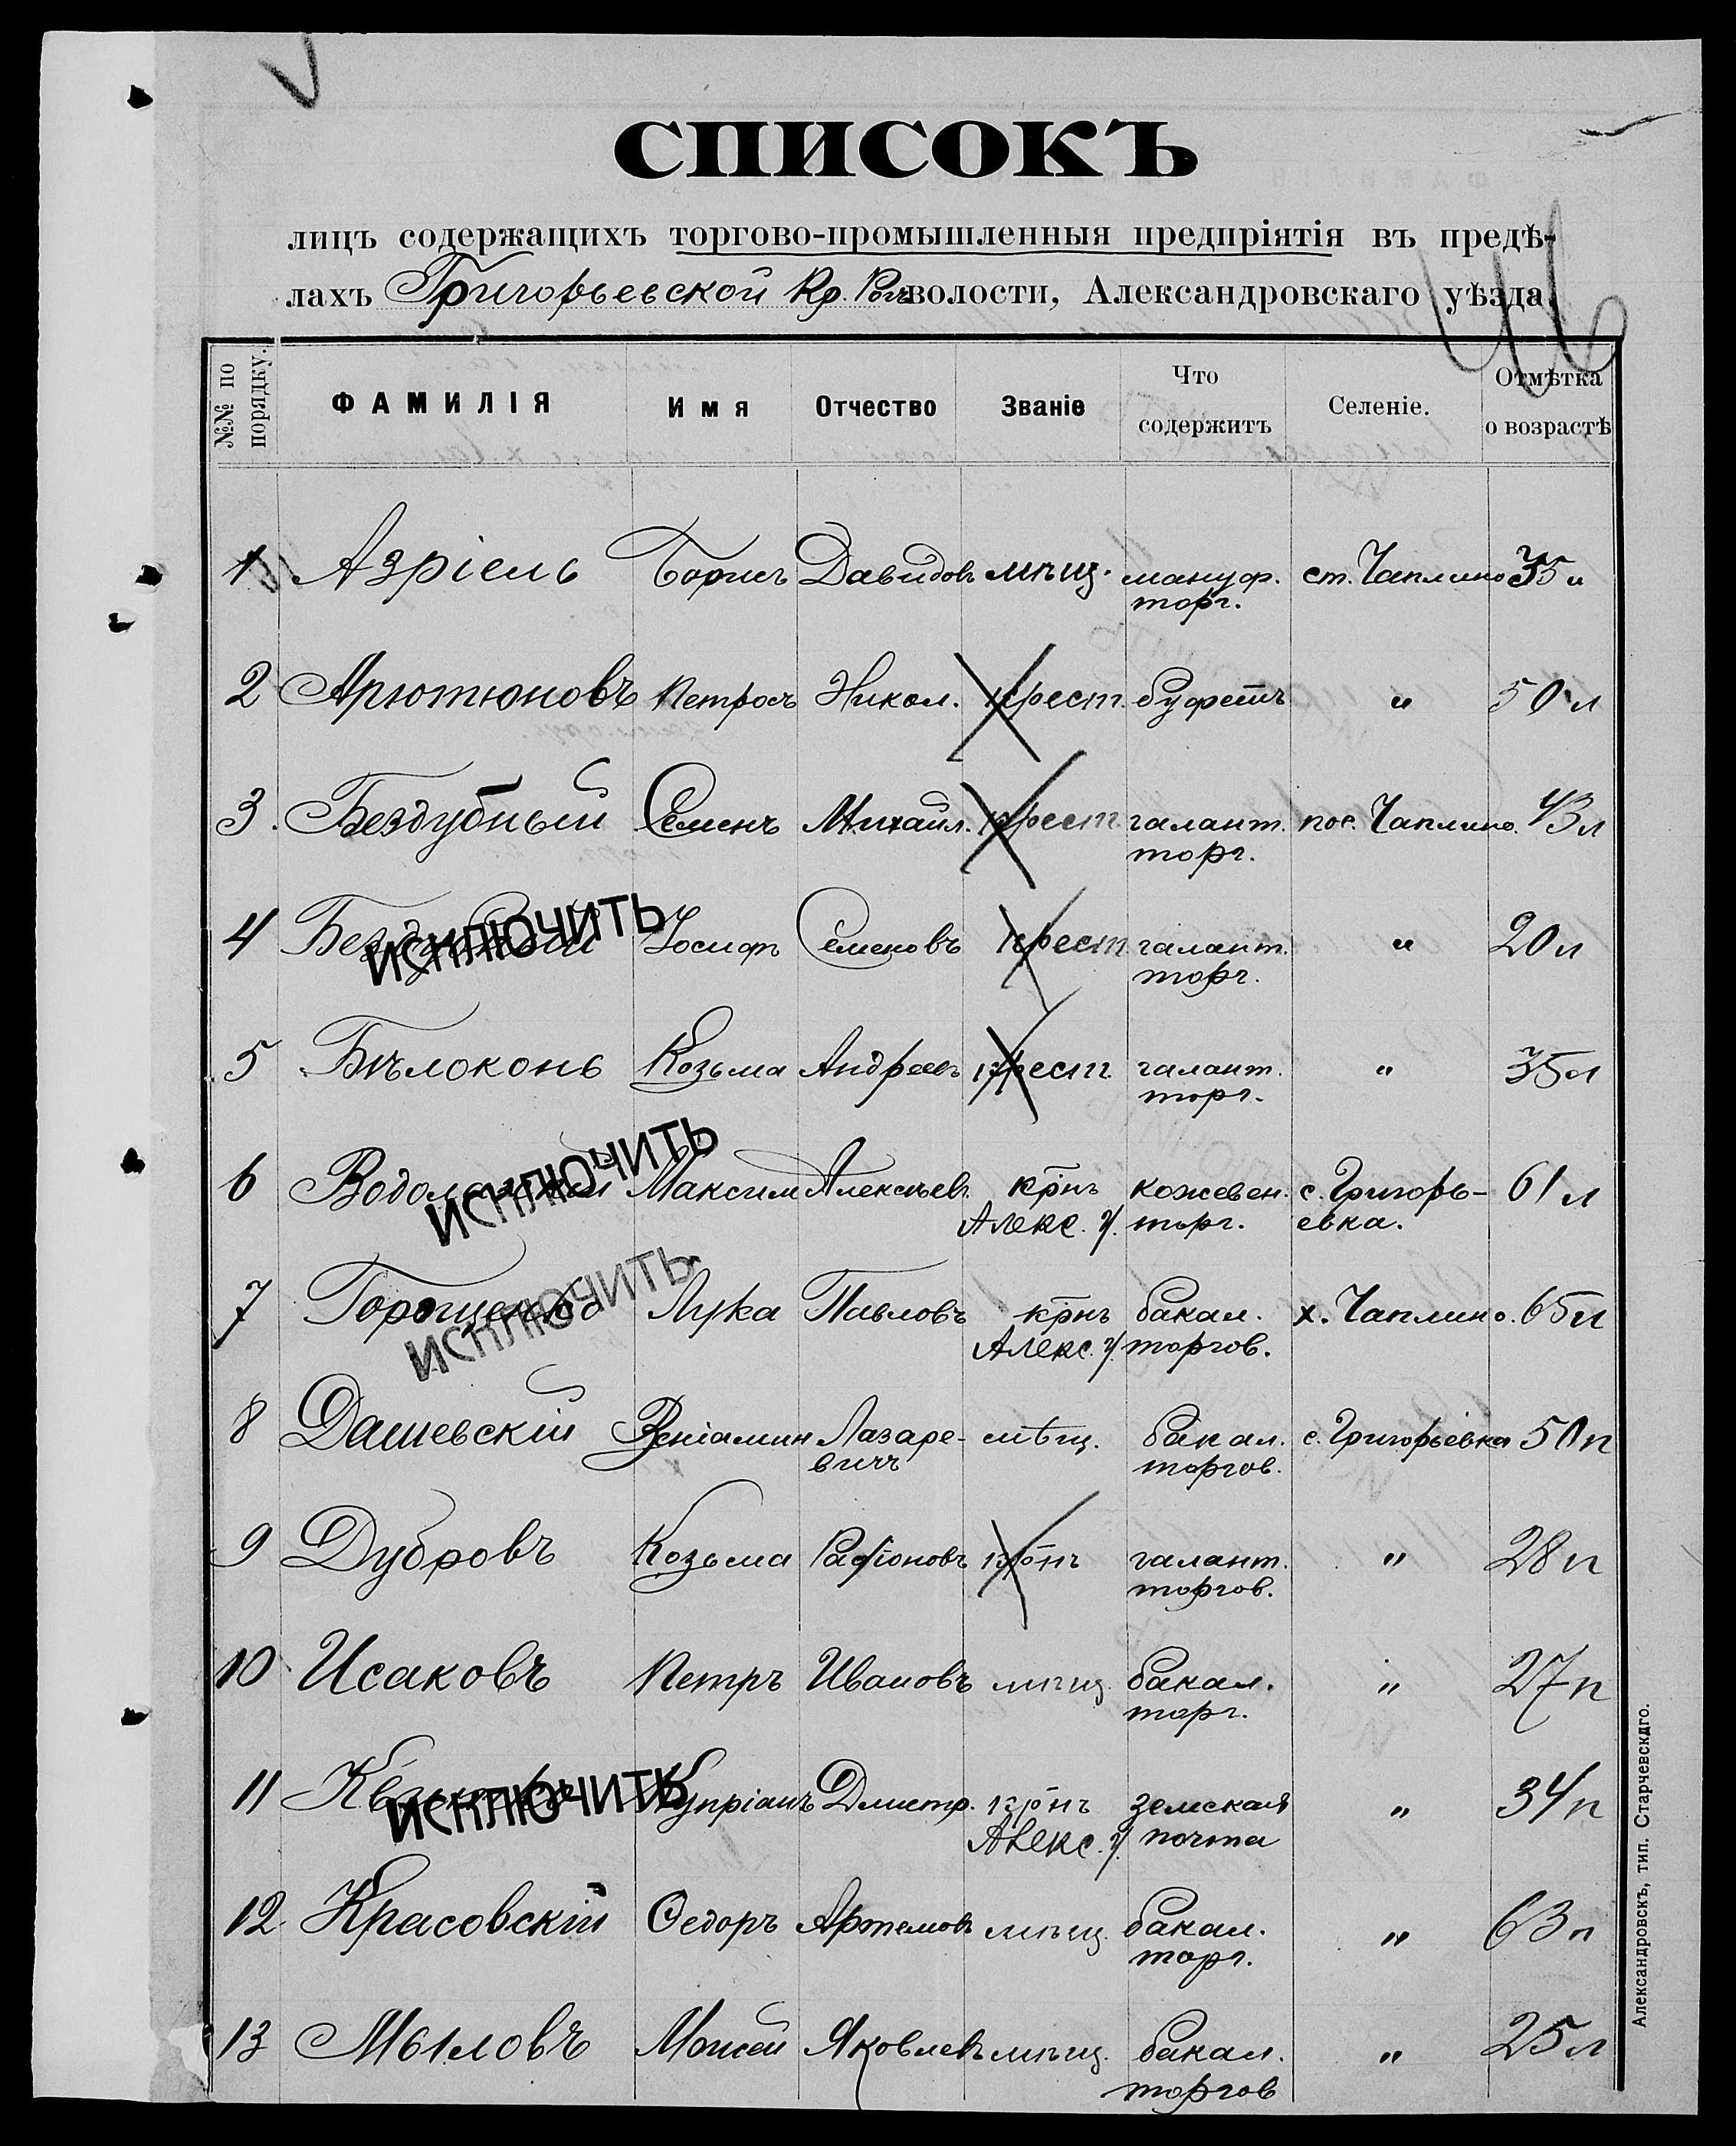 СПИСОКЪ
лицъ содержащихъ торгово-промышленныя предпріятія въ предѣ-
лахъ Григорьевской Кр. волости, Александровскаго уѣзда.
№№ по порядку. ФАМИЛІЯ Имя Отчество Званіе Что содержитъ Селеніе. Отмѣтка о возрастѣ
1 Азріель Борисъ Давидовъ мѣщ. мануф. ст. Чаплино 35 л
торг.
2 Арютюновъ Петросъ Никол. крест. буфетъ „ 50 л
3. Беззубный Семенъ Михаил. крест. галант. пос. Чаплино. 43 л
торг.
4 ИСКЛЮЧИТЬ Іосифъ Семеновъ крест. галант. „ 20 л
торг.
5 Бѣлоконь Козьма Андреевъ крест. галант. „ 35 л
торг.
6 ИСКЛЮЧИТЬ Максим Алексѣев. крнъ кожевен. с. Григорь- 61 л
Алекс. у. торг. евка.
7 Горященко ИСКЛЮЧИТЬ Лука Павловъ крнъ бакал. х. Чаплино. 65 л
Алекс. у. торгов.
8 Дашевскій Веніамин Лазаре- мѣщ. бакал. с. Григорьевка 50 л
вичъ торгов.
9 Дубровъ Козьма Родіоновъ крнъ галант. „ 28 л
торгов.
10 Исаковъ Петръ Ивановъ мѣщ. бакал. „ 27 л
торг.
11 ИСКЛЮЧИТЬ Купріанъ Дмитр. крнъ земская „ 34 л
Алекс. у. почта
12 Красовскій Ѳедоръ Артемовъ мѣщ. бакал. „ 63 л
торг.
13 Мыловъ Моисей Яковлевъ мѣщ. бакал. „ 25 л
торгов
Александровскъ, тип. Старчевскаго.